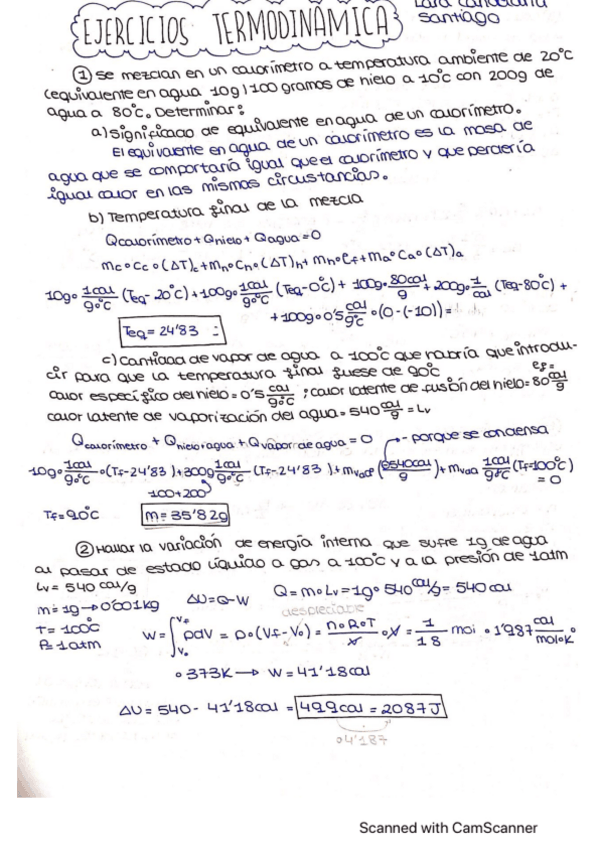 EJERCICIOS TERMODINÁMICA
Santiago
① Se mezclan en un calorímetro a temperatura ambiente de 20°C
(equivalente en agua 10g) 100 gramos de hielo a 10°C con 200g de
agua a 80°C. Determinar:
a) Significado de equivalente en agua de un calorímetro.
El equivalente en agua de un calorímetro es la masa de
agua que se comportaría igual que el calorímetro y que perdería
igual calor en las mismas circustancias.
b) Temperatura final de la mezcla
Qcalorímetro + Qhielo + Qagua = 0
mc∘Cc∘(ΔT)c + mh∘Ch∘(ΔT)h + mh∘ef + ma∘Ca∘(ΔT)a
10g∘ 1cal/g°C (Teq- 20°C) + 100g∘ 1cal/g°C (Teq-0°C) + 100g∘ 80cal/g + 200g∘ 1/cal (Teq-80°C) +
+ 100g∘0'5 cal/g°C ∘(0-(-10)) =
Teq = 24'83
c) Cantidad de vapor de agua a 100°C que habría que introdu-
cir para que la temperatura final fuese de 90°C
calor específico del hielo = 0'5 cal/g°C ; calor latente de fusión del hielo = 80 cal/g
ef=
calor latente de vaporización del agua = 540 cal/g = Lv
Qcalorímetro + Qhielo+agua + Qvapor de agua = 0
porque se condensa
10g∘ 1cal/g°C ∘(Tf-24'83) + 300g 1cal/g°C (Tf-24'83) + mvap (-540cal/g) + mvap 1cal/g°C (Tf-100°C)
= 0
100+200
Tf = 90°C m = 35'82g
② Hallar la variación de energía interna que sufre 1g de agua
al pasar de estado líquido a gas a 100°C y a la presión de 1atm
Lv = 540 cal/g
m = 1g → 0'001kg ΔU = Q-W Q = m∘Lv = 1g∘ 540 cal/g = 540 cal
despreciable
T = 100°C
P = 1atm
W = ∫ Vf Vo pdV = p∘(Vf-Vo) = n∘R∘T/V ∘V = 1/18 mol ∘ 1'987 cal/mol∘K ∘
∘ 373K → W = 41'18cal
ΔU = 540 - 41'18cal = 499cal = 2087J
∘4'187
Scanned with CamScanner